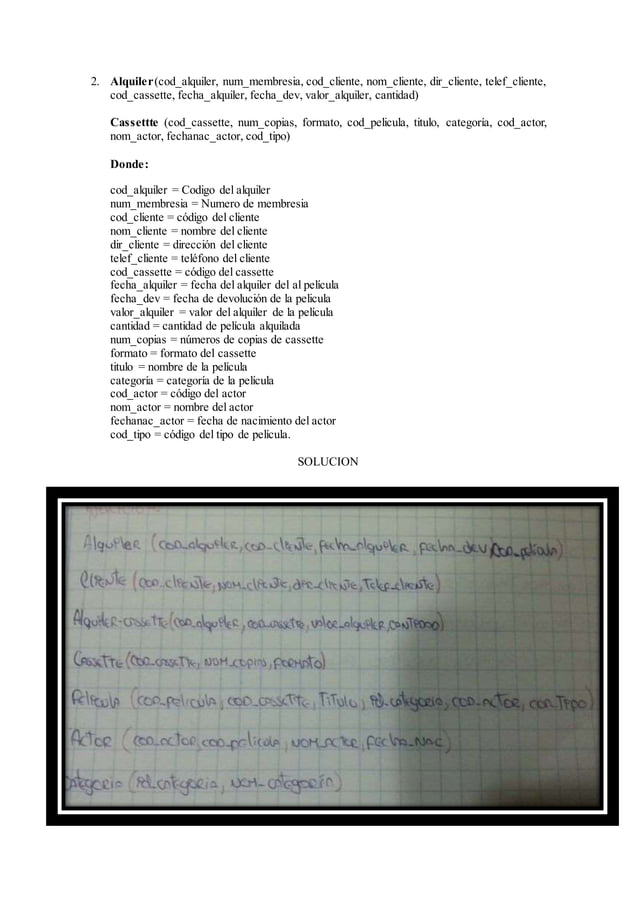 2. Alquiler (cod_alquiler, num_membresia, cod_cliente, nom_cliente, dir_cliente, telef_cliente,
cod_cassette, fecha_alquiler, fecha_dev, valor_alquiler, cantidad)
Cassettte (cod_cassette, num_copias, formato, cod_pelicula, titulo, categoría, cod_actor,
nom_actor, fechanac_actor, cod_tipo)
Donde:
cod_alquiler = Codigo del alquiler
num_membresia = Numero de membresia
cod_cliente = código del cliente
nom_cliente = nombre del cliente
dir_cliente = dirección del cliente
telef_cliente = teléfono del cliente
cod_cassette = código del cassette
fecha_alquiler = fecha del alquiler del al película
fecha_dev = fecha de devolución de la película
valor_alquiler = valor del alquiler de la película
cantidad = cantidad de película alquilada
num_copias = números de copias de cassette
formato = formato del cassette
titulo = nombre de la película
categoría = categoría de la película
cod_actor = código del actor
nom_actor = nombre del actor
fechanac_actor = fecha de nacimiento del actor
cod_tipo = código del tipo de película.
SOLUCION
Alquiler (cod_alquiler, cod_cliente, fecha_alquiler, fecha_dev, cod_pelicula)
Cliente (cod_cliente, nom_cliente, dir_cliente, telef_cliente)
Alquiler-cassette (cod_alquiler, cod_cassette, valor_alquiler, cantidad)
Cassette (cod_cassette, num_copias, formato)
Pelicula (cod_pelicula, cod_cassette, titulo, id_categoria, cod_actor, cod_tipo)
Actor (cod_actor, cod_pelicula, nom_actor, fecha_nac)
Categoria (id_categoria, nom_categoria)